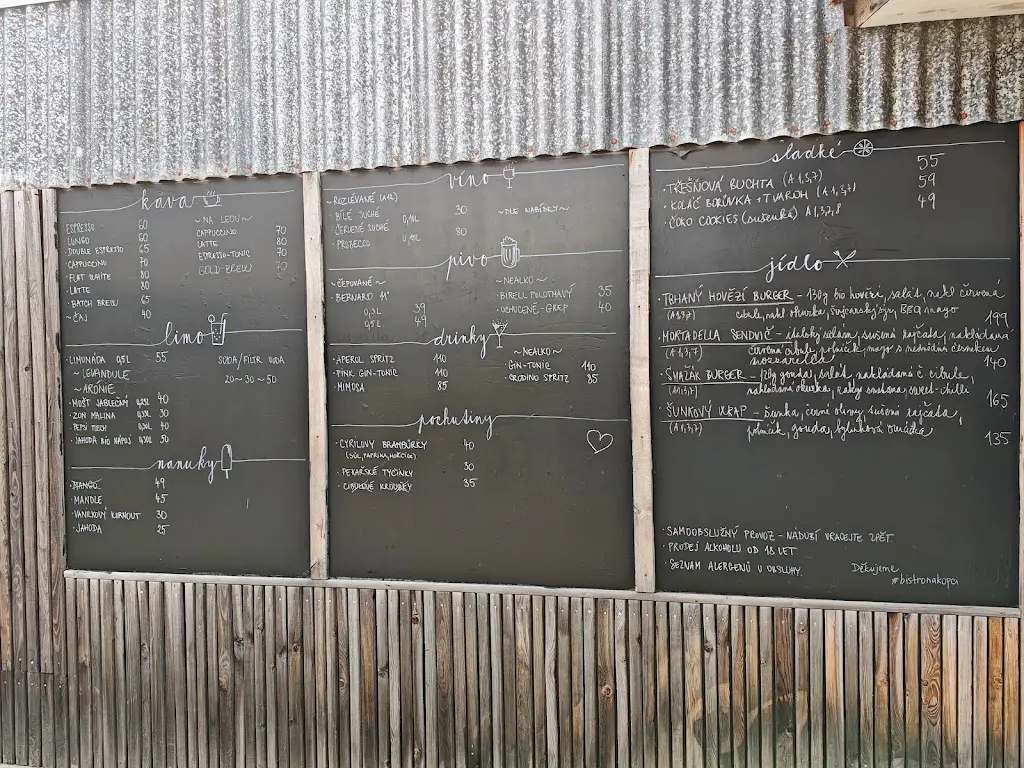 káva
ESPRESSO 60
LUNGO 60
DOUBLE ESPRESSO 65
CAPPUCCINO 70
FLAT WHITE 80
LATTE 80
BATCH BREW 65
~ ČAJ 40
~ NA LEDU ~
CAPPUCCINO 70
LATTE 80
ESPRESSO-TONIC 70
COLD-BREW 70
limo
LIMONÁDA 0,5L 55
~ LEVANDULE
~ ARONIE
· MOŠT JABLEČNÝ 0,25L 40
· ZON MALINA 0,33L 30
· PEPSI TECH 40
· JAHODA BIO NÁPOJ 50
SODA/FILTR. VODA
20~30~50
nanuky
· MANGO 49
· MANDLE 45
· VANILKOVÝ KORNOUT 30
· JAHODA 25
víno
~ ROZLÉVANÉ (A12)
BÍLÉ SUCHÉ 0,1L 30
ČERVENÉ SUCHÉ
· PROSECCO 0,15L 80
~ DLE NABÍDKY ~
pivo
~ ČEPOVANÉ ~
· BERNARD 11°
0,3L 39
0,5L 49
~ NEALKO ~
· BIRELL POLOTMAVÝ 35
· OCHUCENÉ - GREP 40
drinky
· APEROL SPRITZ 110
· PINK GIN-TONIC 110
· MIMOSA 85
~ NEALKO ~
· GIN-TONIC 110
· CRODINO SPRITZ 85
pochutiny
· CYRILOVY BRAMBŮRKY 40
(SŮL, PAPRIKA, HOŘČICE)
· PEKAŘSKÉ TYČINKY 30
· CIBULOVÉ KROUŽKY 35
sladké
· TŘEŠŇOVÁ BUCHTA (A 1,3,7) 55
· KOLÁČ BORŮVKA + TVAROH (A 1,3,7) 59
· ČOKO COOKIES (sušenka) A 1,3,7,8 49
jídlo
· TRHANÝ HOVĚZÍ BURGER - 130g bio hovězí, salát, nakl. červená
(A1,3,7) cibule, nakl. okurka, švýcarský sýr, BBQ mayo 199
· MORTADELLA SENDVIČ - italský salám, sušená rajčata, nakládaná
(A 1,3,7) červená cibule, polníček, mayo s medvědím česnekem
mozzarella 140
· SMAŽÁK BURGER - 120g gouda, salát, nakládaná č. cibule,
(A1,3,7) nakládaná okurka, zakys. smetana, sweet-chilli 165
· ŠUNKOVÝ WRAP - šunka, černé olivy, sušená rajčata,
(A 1,3,7) polníček, gouda, bylinková omáčka 135
· SAMOOBSLUŽNÝ PROVOZ - NÁDOBÍ VRACEJTE ZPĚT
· PRODEJ ALKOHOLU OD 18 LET
· SEZNAM ALERGENŮ U OBSLUHY.
Děkujeme
#bistronakopci